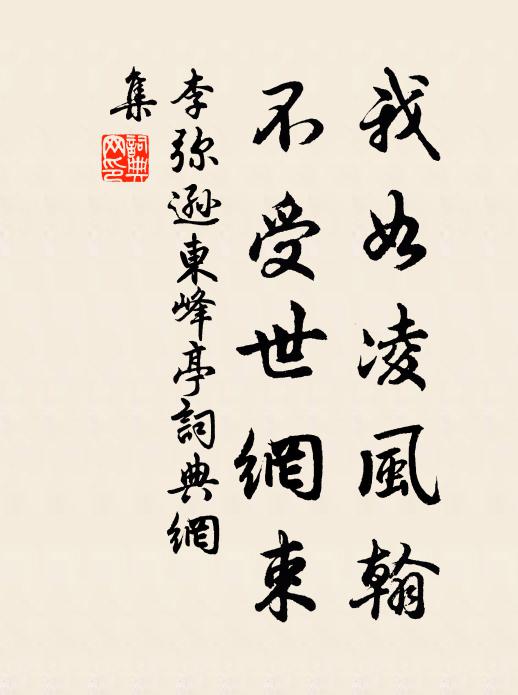 我如凌風翰
不受世網束
李弥遜東峰亭詞典網
集
詞典網印